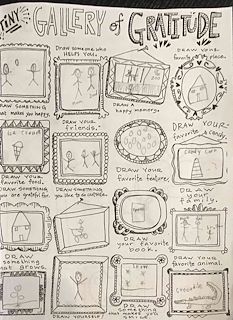 TINY GALLERY of GRATITUDE
DRAW SOMEONE WHO
HELPS YOU.
DRAW YOUR
favorite place.
DRAW SOMETHING
that makes you
happy.
DRAW A
happy memory.
DRAW YOUR
friends.
DRAW YOUR
favorite candy.
Ice Cream
Candy Corn
DRAW YOUR
favorite food.
DRAW SOMETHING
you are grateful for.
DRAW SOMETHING
you like to do outside.
DRAW YOUR
favorite feature.
DRAW
your
family.
DRAW
your favorite
book.
DRAW
something
that grows.
DRAW YOURSELF
DRAW
something
that makes you
DRAW YOUR
favorite animal.
Crocodile